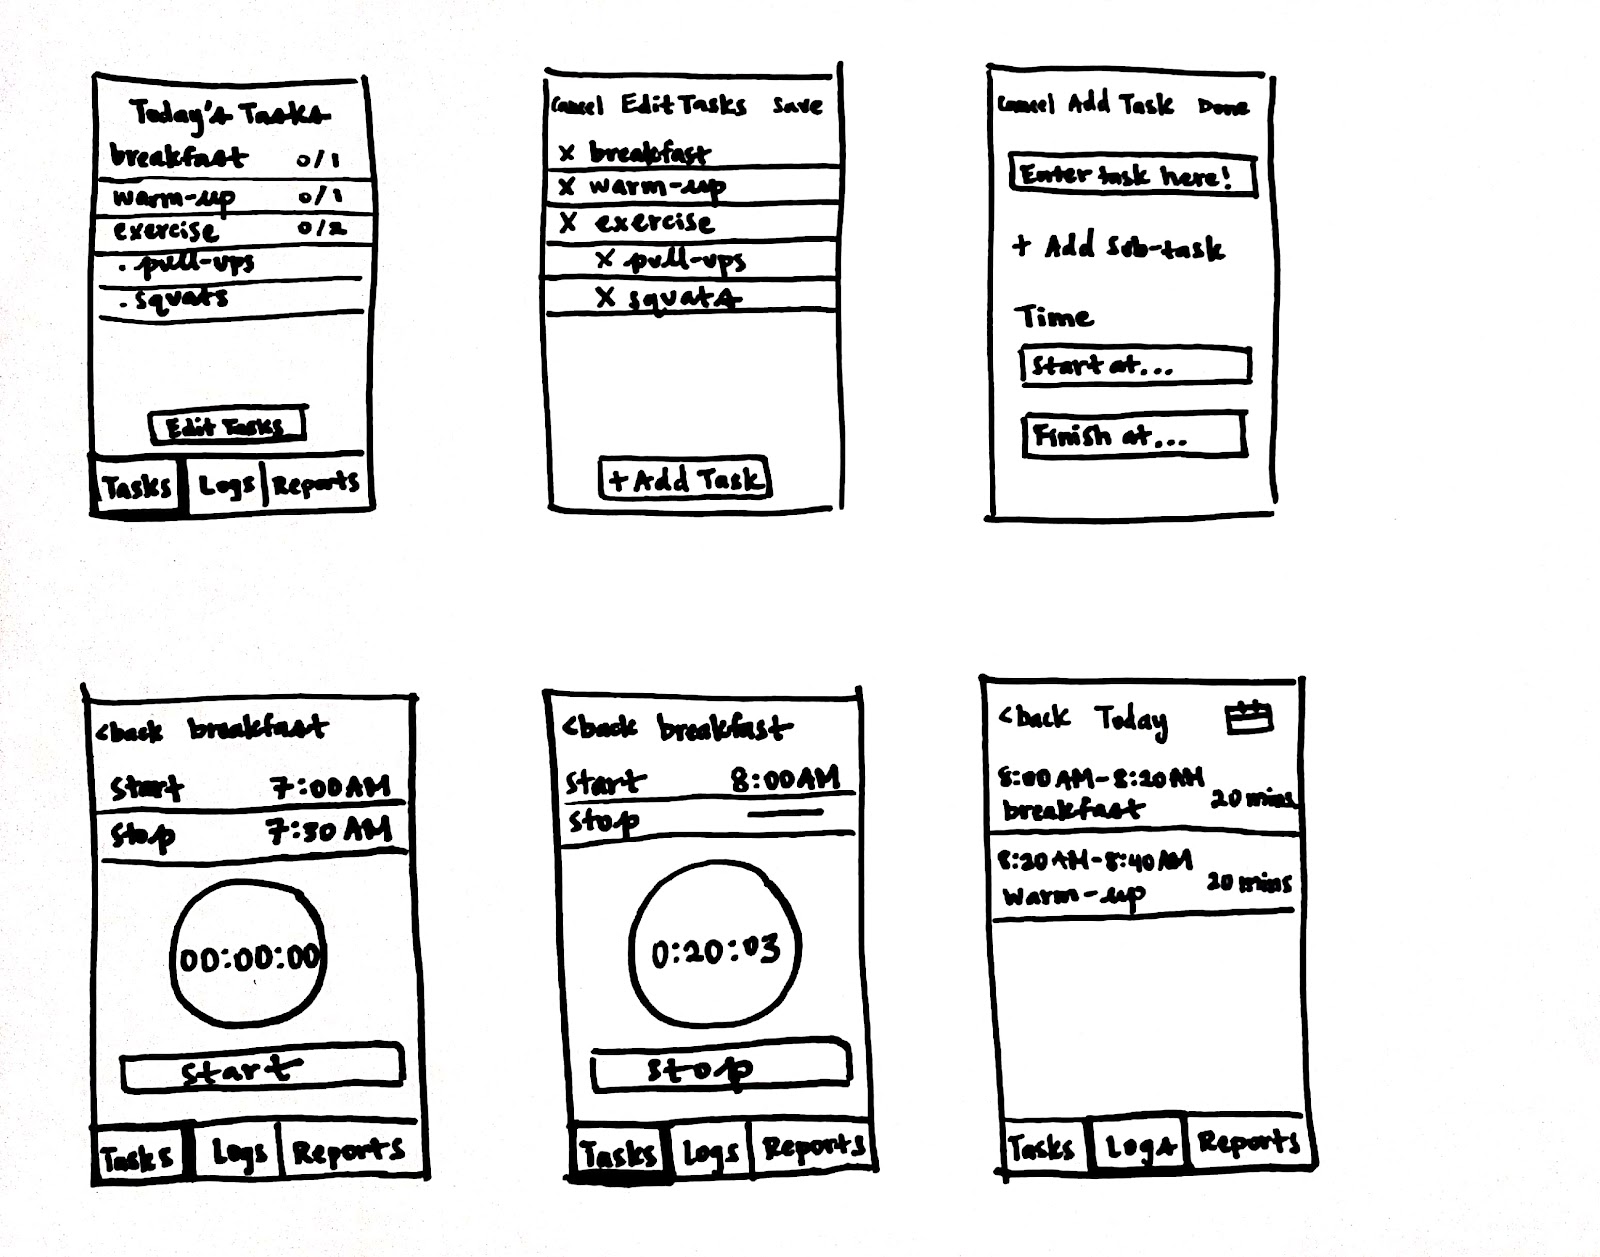 Today's Tasks
breakfast 0/1
warm-up 0/1
exercise 0/2
. pull-ups
. squats
Edit Tasks
Tasks Logs Reports
Cancel Edit Tasks Save
x breakfast
x warm-up
x exercise
x pull-ups
x squats
+ Add Task
Cancel Add Task Done
Enter task here!
+ Add Sub-task
Time
Start at...
Finish at...
<back breakfast
Start 7:00AM
Stop 7:30 AM
00:00:00
Start
Tasks Logs Reports
<back breakfast
Start 8:00AM
Stop —
0:20:03
Stop
Tasks Logs Reports
<back Today
8:00 AM-8:20 AM
breakfast 20 mins
8:20 AM-8:40 AM
warm-up 20 mins
Tasks Logs Reports